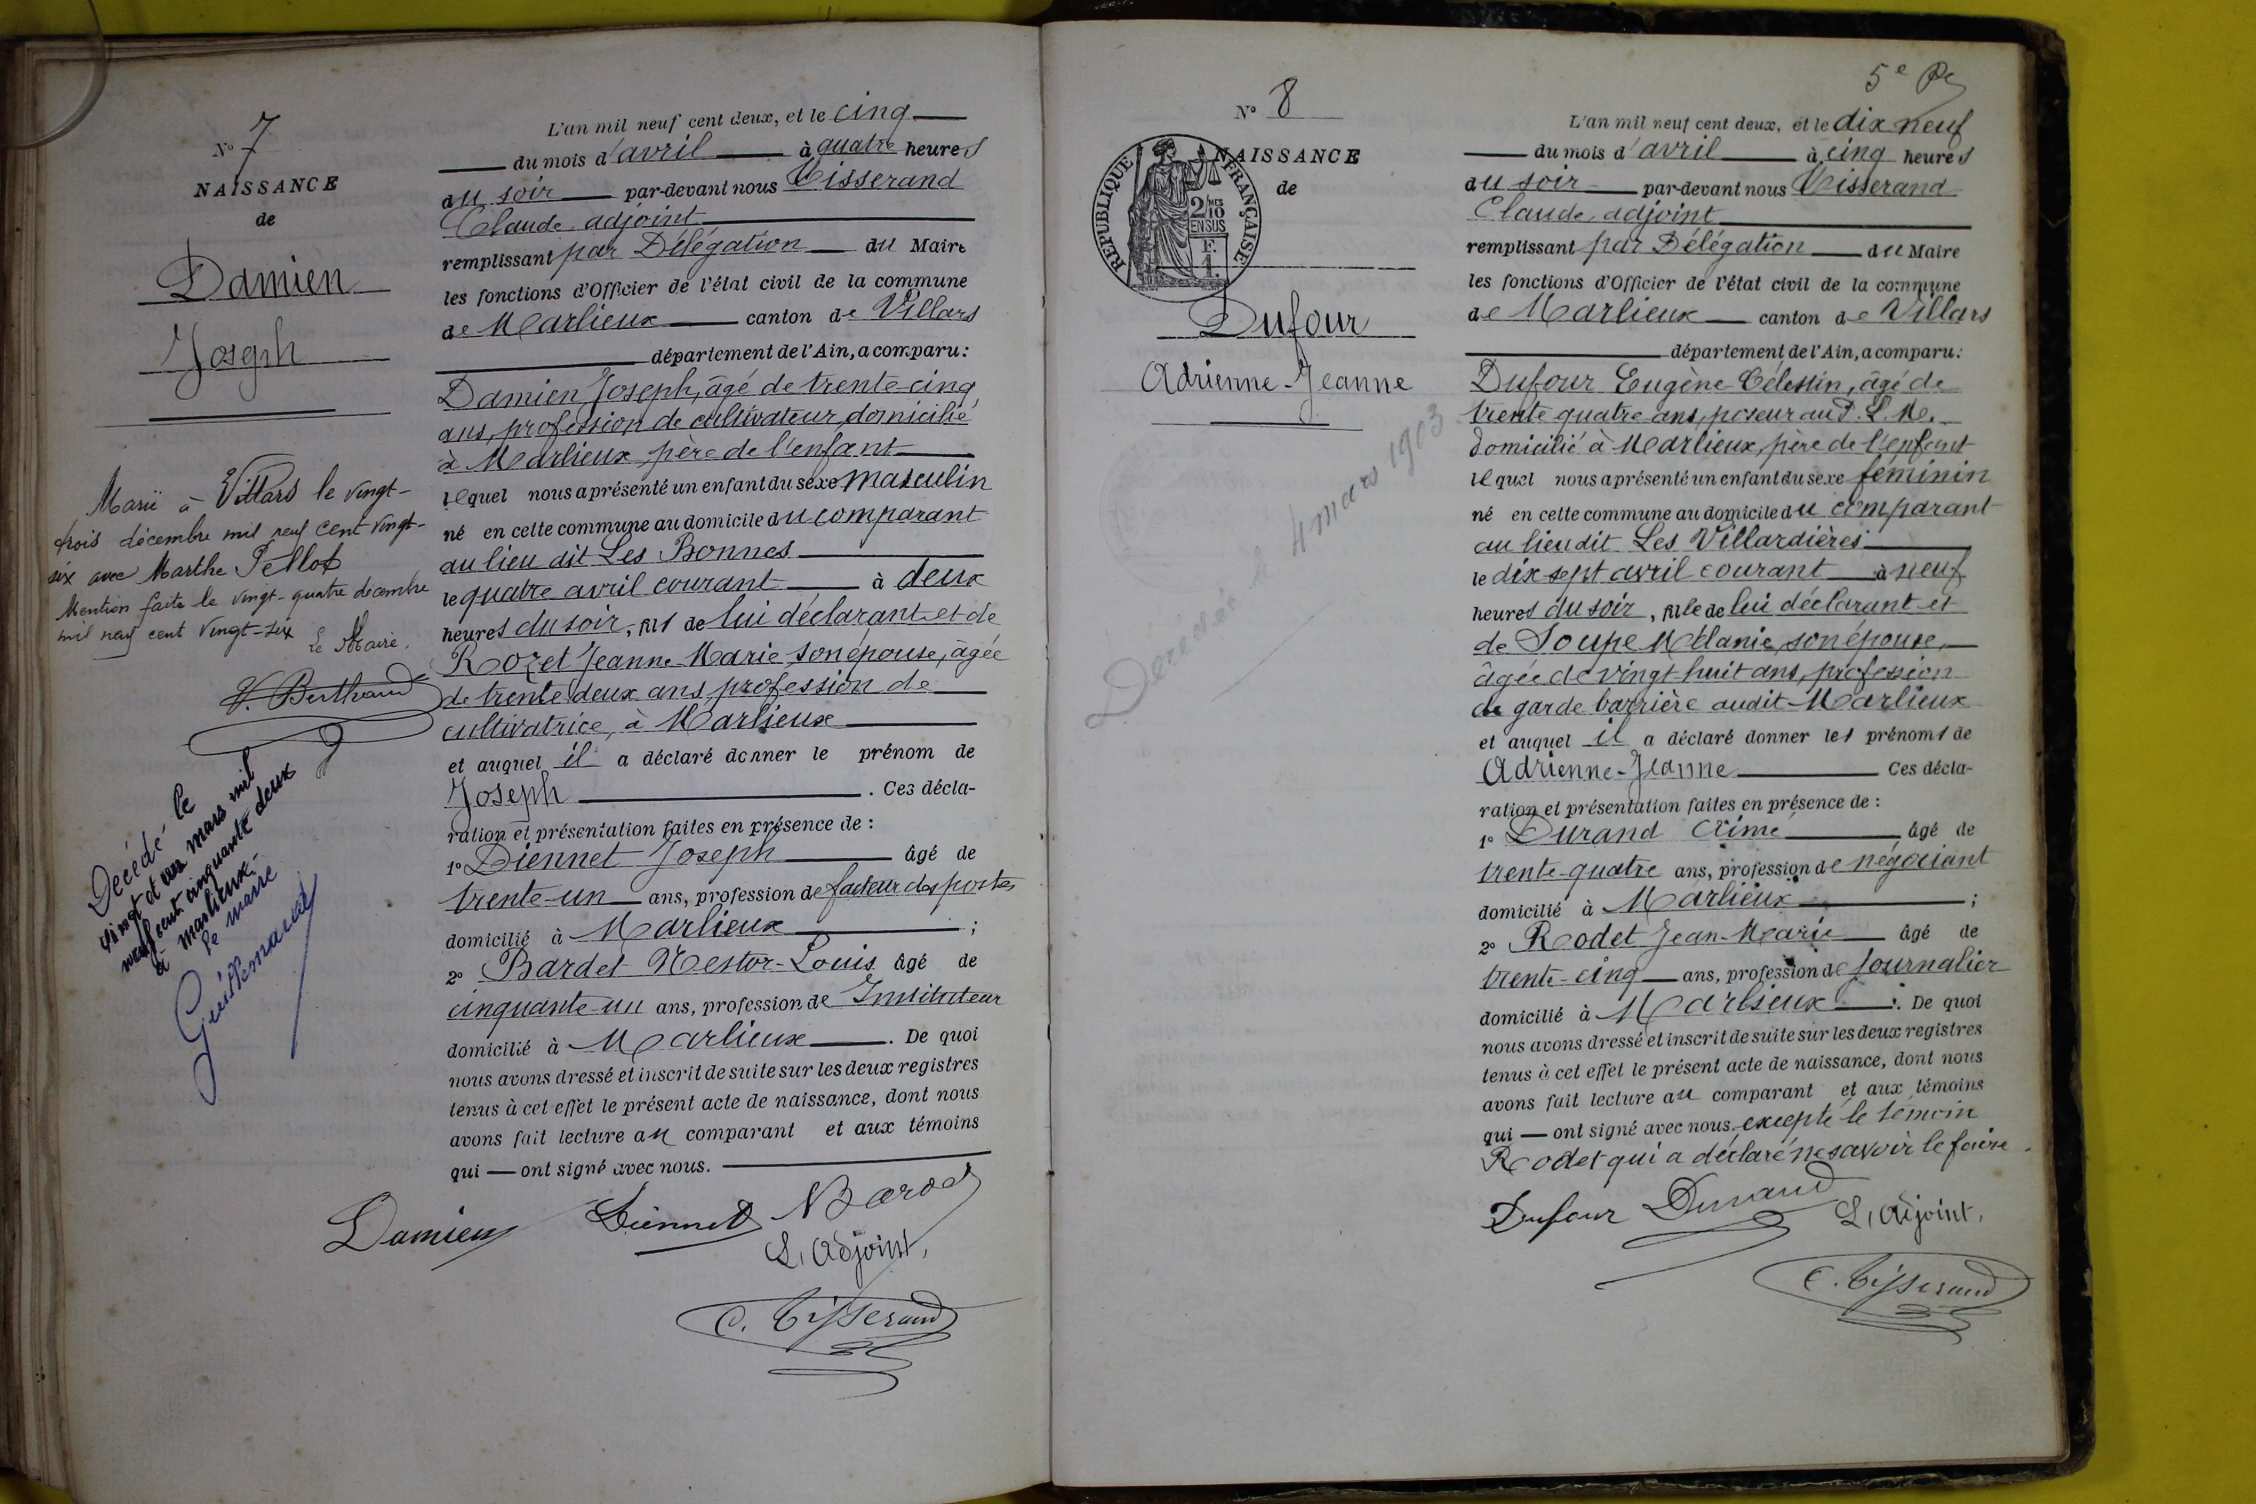 N° 7
NAISSANCE
de
Damien
Joseph
Marié à Villars le vingt-
trois décembre mil neuf cent vingt-
six avec Marthe Pellot
Mention faite le vingt-quatre décembre
mil neuf cent vingt-six
Le Maire.
V. Berthaud
Décédé le
vingt et un mars mil
neuf cent cinquante deux
à Marlieux.-
le maire
Guillemaud
L'an mil neuf cent deux, et le cinq
du mois d'avril à quatre heures
du soir par-devant nous Tisserand
Claude, adjoint
remplissant par Délégation du Maire
les fonctions d'Officier de l'état civil de la commune
de Marlieux canton de Villars
département de l'Ain, a comparu:
Damien Joseph, âgé de trente-cinq
ans, profession de cultivateur, domicilié
à Marlieux, père de l'enfant
lequel nous a présenté un enfant du sexe masculin
né en cette commune au domicile du comparant
au lieu dit Les Bonnes
le quatre avril courant à deux
heures du soir, fils de lui déclarant et de
Rozet Jeanne-Marie son épouse, âgée
de trente deux ans, profession de
cultivatrice, à Marlieux
et auquel il a déclaré donner le prénom de
Joseph . Ces décla-
ration et présentation faites en présence de :
1° Diennet Joseph âgé de
trente-un ans, profession de facteur des postes
domicilié à Marlieux ;
2° Bardet Nestor-Louis âgé de
cinquante-un ans, profession de Instituteur
domicilié à Marlieux . De quoi
nous avons dressé et inscrit de suite sur les deux registres
tenus à cet effet le présent acte de naissance, dont nous
avons fait lecture au comparant et aux témoins
qui — ont signé avec nous.
Damien Diennet NBardet
L'Adjoint,
C. Tisserand
5e
N° 8
NAISSANCE
de
RÉPUBLIQUE FRANÇAISE
2/10MES
EN SUS
F.
1.
Dufour
Adrienne-Jeanne
Décédée le 4 mars 1903
L'an mil neuf cent deux, et le dix neuf
du mois d'avril à cinq heures
du soir par-devant nous Tisserand
Claude, adjoint
remplissant par Délégation du Maire
les fonctions d'Officier de l'état civil de la commune
de Marlieux canton de Villars
département de l'Ain, a comparu:
Dufour Eugène-Célestin, âgé de
trente quatre ans, poseur au P. L. M.
domicilié à Marlieux, père de l'enfant
lequel nous a présenté un enfant du sexe féminin
né en cette commune au domicile du comparant
au lieu dit Les Villardières
le dix sept avril courant à neuf
heures du soir, fille de lui déclarant et
de Soupe Mélanie, son épouse,
âgée de vingt huit ans, profession
de garde barrière audit Marlieux
et auquel il a déclaré donner les prénoms de
Adrienne-Jeanne Ces décla-
ration et présentation faites en présence de :
1° Durand Aimé âgé de
trente-quatre ans, profession de négociant
domicilié à Marlieux ;
2° Rodet Jean-Marie âgé de
trente-cinq ans, profession de journalier
domicilié à Marlieux . De quoi
nous avons dressé et inscrit de suite sur les deux registres
tenus à cet effet le présent acte de naissance, dont nous
avons fait lecture au comparant et aux témoins
qui — ont signé avec nous. excepté le témoin
Rodet qui a déclaré ne savoir le faire.
Dufour Durand
L'Adjoint,
C. Tisserand